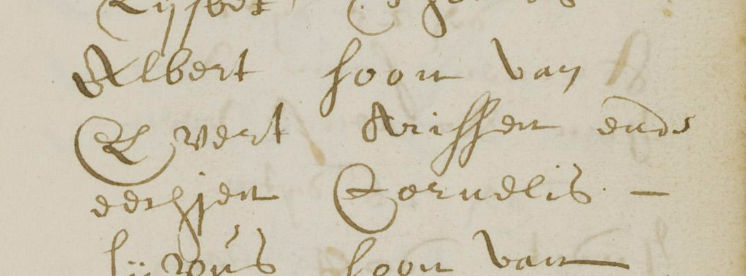 Lijsbet
Albert soon van
Evert Arissen ende
eechjen Cornelis —
soon van